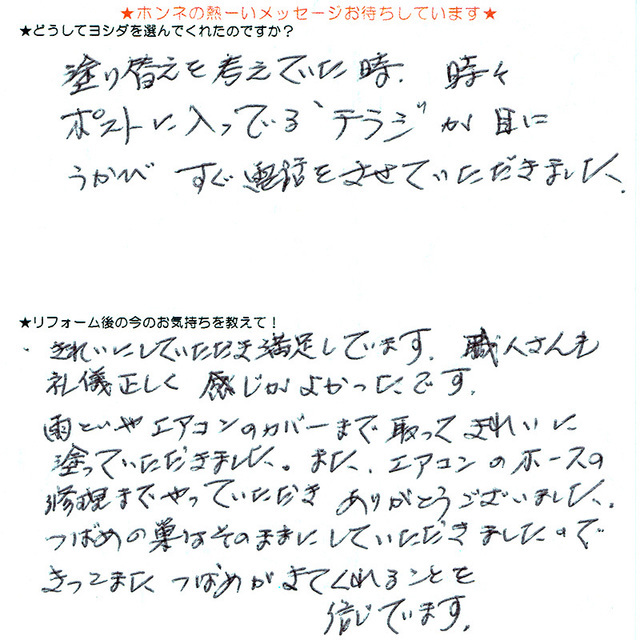 ★ホンネの熱ーいメッセージお待ちしています★
★どうしてヨシダを選んでくれたのですか？
塗り替えを考えていた時、時々
ポストに入っている〝チラシ〟が目に
うかび すぐ電話をさせていただきました、
★リフォーム後の今のお気持ちを教えて！
・きれいにしていただき満足しています、職人さんも
礼儀正しく 感じがよかったです。
雨といやエアコンのカバーまで取ってきれいに
塗っていただきました。また、エアコンのホースの
修理までやっていただき ありがとうございました。
つばめの巣はそのままにしていただきましたので
きっとまた つばめがきてくれることを
信じています。